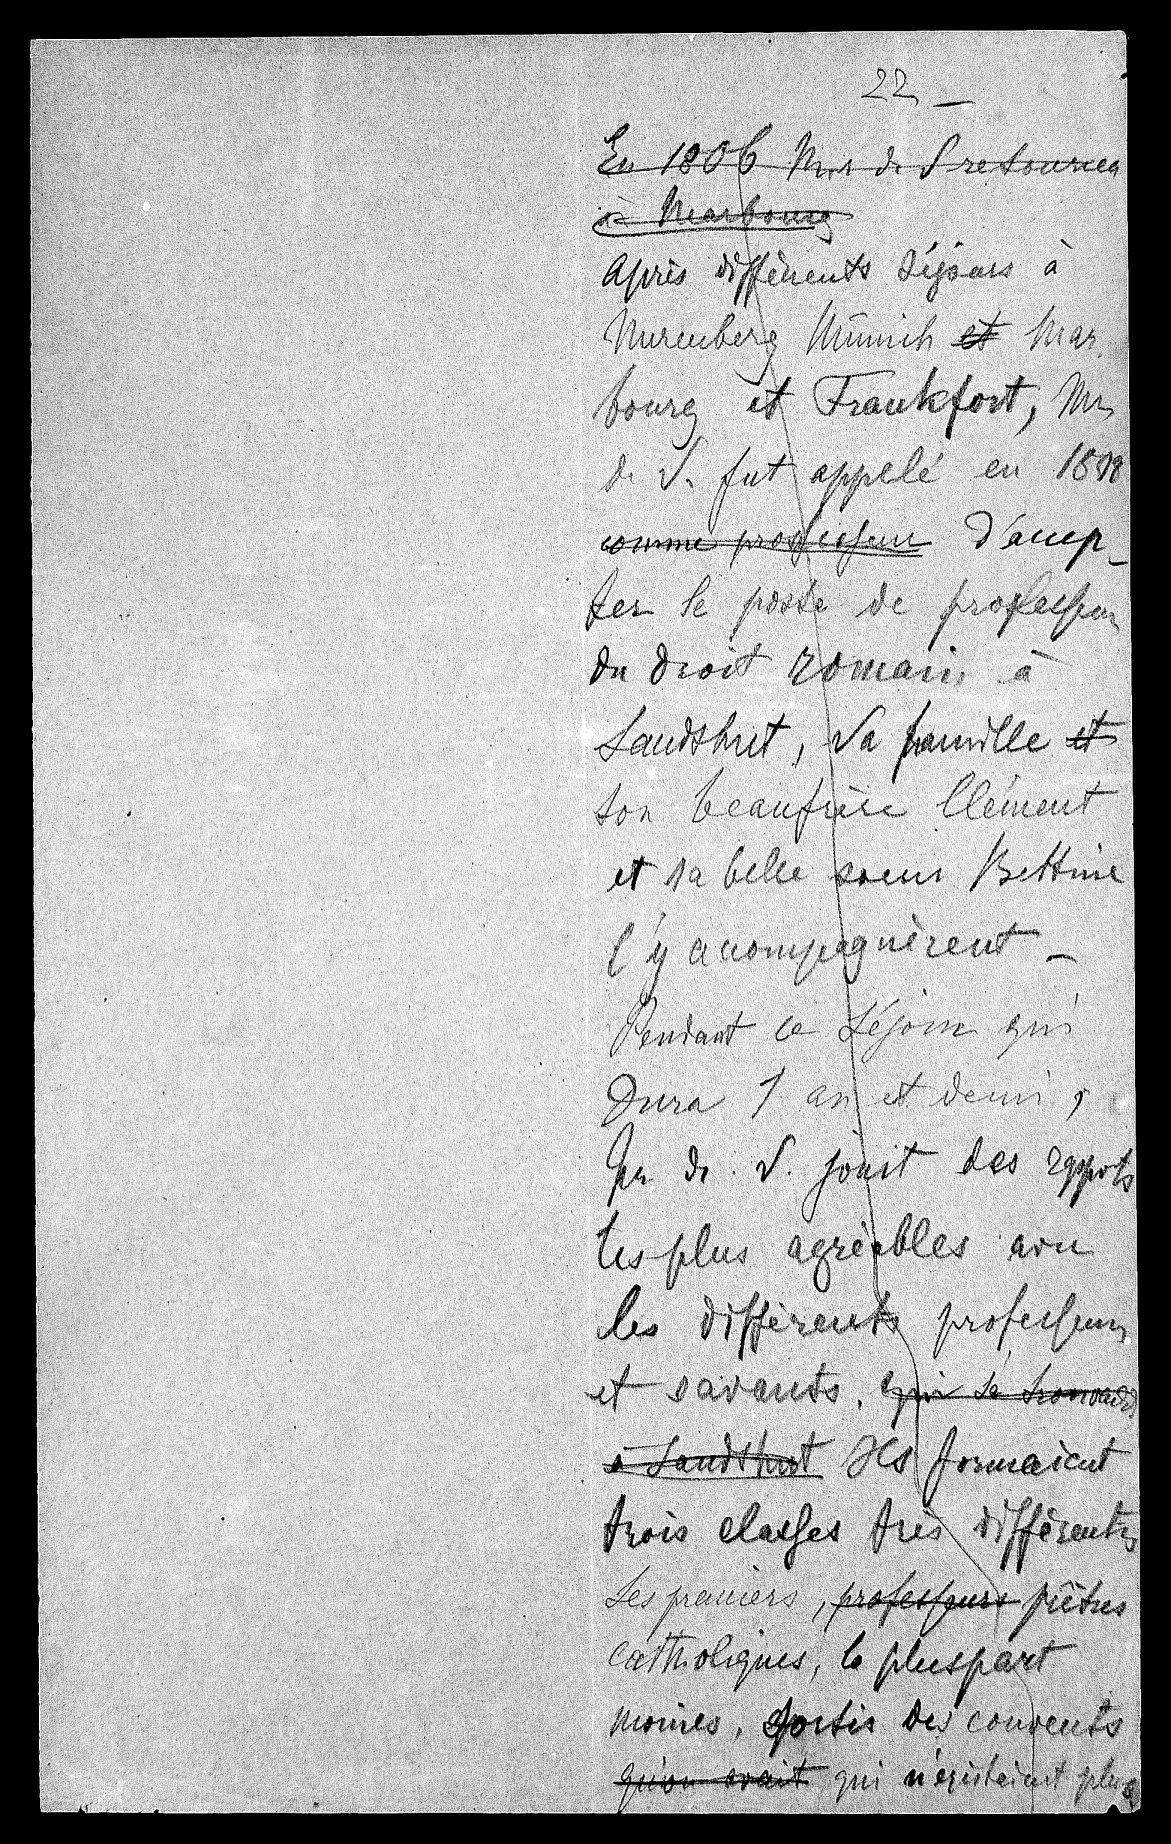 22 _
En 1806 Mr de S retourna
à Marbourg
après différents séjours à
Nurenberg Münich et Mar
bourg et Frankfort, Mr
de S. fut appelé en 1808
comme professeur d'accep_
ter le poste de professeur
du droit romain à
Landshut, Sa famille et
son beaufrère Clément
et sa belle soeur Bettine
l'y acompagnèrent _
Pendant ce séjour qui
dura 1 an et demi,
Mr de S. jouit des rapports
les plus agréables avec
les différents professeurs
et savants. qui se trouvaient
à Landshut Ils formaient
trois classes très différentes
Les premiers, professeurs prêtres
catholiques, la pluspart
moines, sortis des couvents
qu'on avait qui n'existaient plus